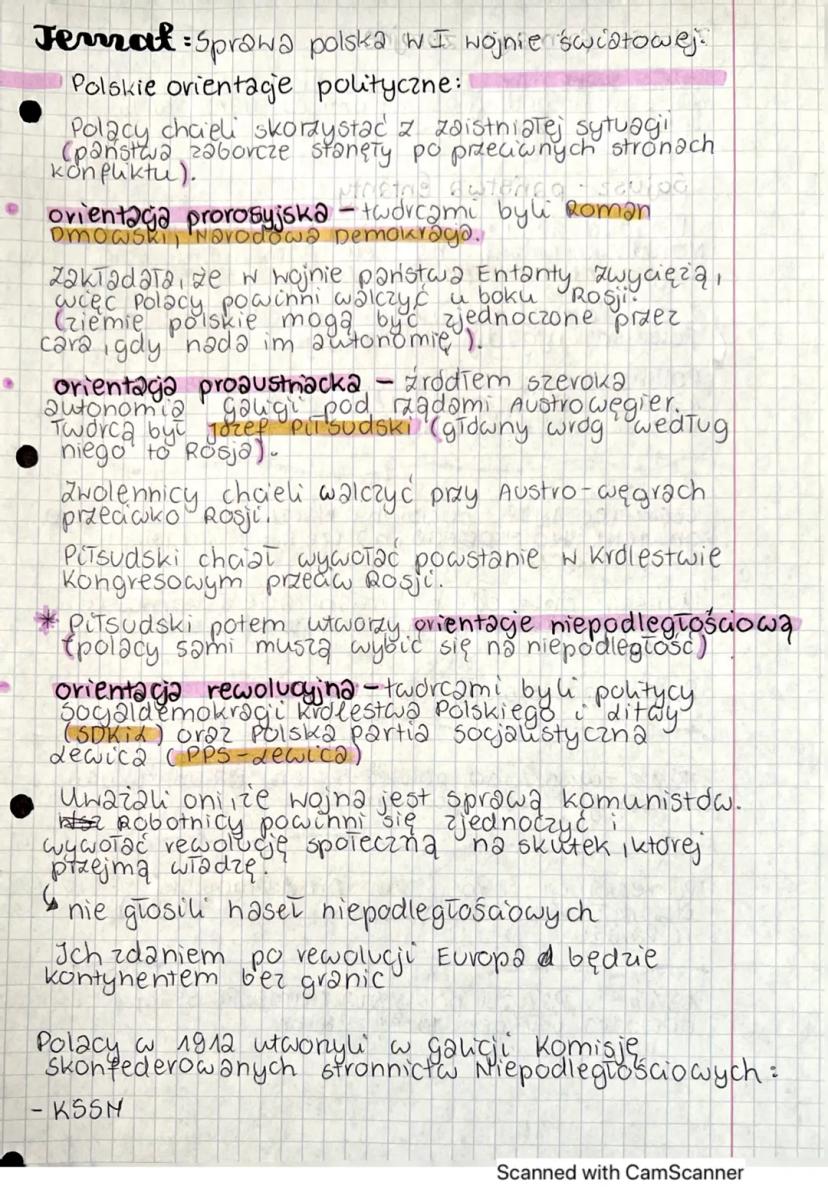 Temat: Sprawa polska w I wojnie światowej.
Polskie orientacje polityczne:
Polacy chcieli skorzystać z zaistniałej sytuacji
(państwa zaborcze stanęły po przeciwnych stronach
konfliktu).
orientacja prorosyjska – twórcami byli Roman
Dmowski, Narodowa Demokracja.
Zakładała, że w wojnie państwa Ententy zwyciężą,
więc Polacy powinni walczyć u boku Rosji.
(ziemie polskie mogą być zjednoczone przez
cara, gdy nada im autonomię).
orientacja proaustriacka – źródłem szeroka
autonomia Galicji pod rządami Austrowęgier.
Twórcą był Józef Piłsudski (główny wróg według
niego to Rosja).
Zwolennicy chcieli walczyć przy Austro-węgrach
przeciwko Rosji.
Piłsudski chciał wywołać powstanie w Królestwie
Kongresowym przeciw Rosji.
* Piłsudski potem utworzy orientacje niepodległościową
(polacy sami muszą wybić się na niepodległość)
orientacja rewolucyjna – twórcami byli politycy
Socjaldemokracji Królestwa Polskiego i Litwy
(SDKiL) oraz Polska Partia Socjalistyczna
Lewica (PPS-Lewica)
Uważali oni, że wojna jest sprawą komunistów.
Robotnicy powinni się zjednoczyć i
wywołać rewolucję społeczną na skutek, której
przejmą władzę.
↳ nie głosili haseł niepodległościowych
Ich zdaniem po rewolucji Europa będzie
kontynentem bez granic
Polacy w 1912 utworzyli w Galicji Komisję
Skonfederowanych Stronnictw Niepodległościowych:
- KSSN
Scanned with CamScanner